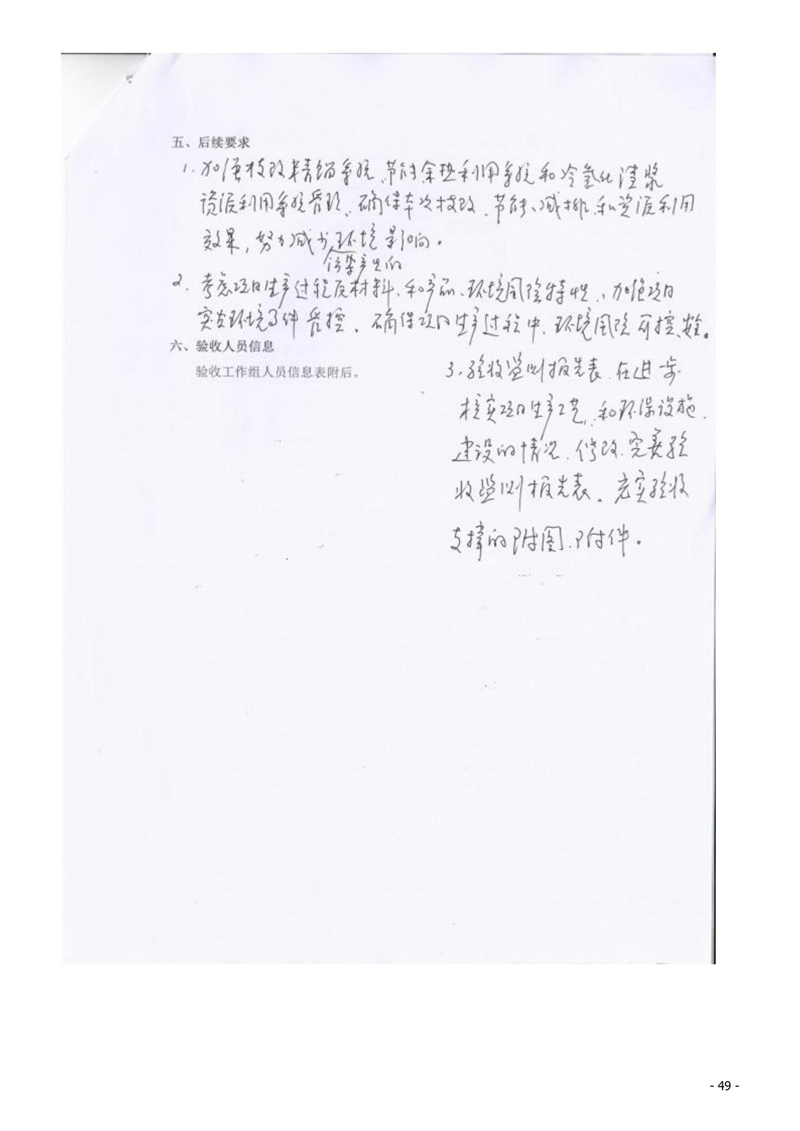 五、后续要求
1.加强技改精馏系统、节能余热利用系统和冷氢化渣浆
资源利用系统管理、确保本次技改、节能、减排和资源利用
效果,努力减少污染产生的环境影响。
2.考虑项目生产过程原材料、和产品、环境风险特性、加强项目
突发环境事件管控、确保项目生产过程中、环境风险可控、
六、验收人员信息
验收工作组人员信息表附后。
3、验收监测报告表、在进一步
核实项目生产工艺、和环保设施
建设的情况、修改、完善验
收监测报告表、充实验收
支撑的附图、附件。
- 49 -